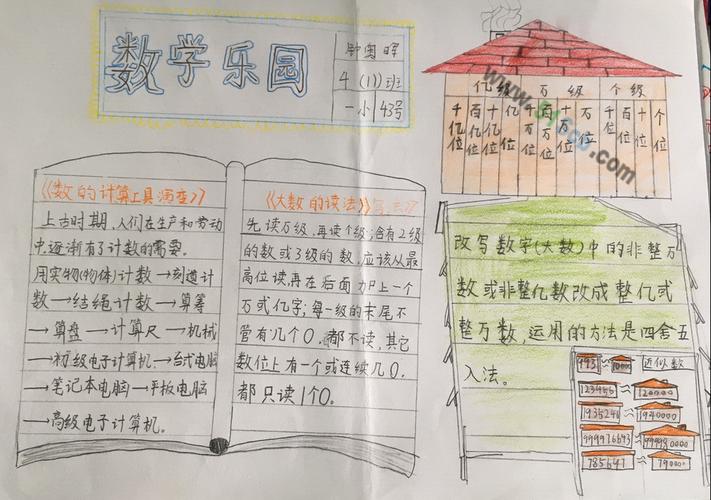 数学乐园
4(1)班
一小43号
亿级 万级 个级
千亿位 百亿位 十亿位 亿位 千万位 百万位 十万位 万位 千位 百位 十位 个位
《数的计算工具演变》
上古时期,人们在生产和劳动
中逐渐有了计数的需要。
用实物(物体)计数→刻道计
数→结绳计数→算筹
→算盘→计算尺→机械
→初级电子计算机→台式电脑
→笔记本电脑→平板电脑
→高级电子计算机。
《大数的读法》
先读万级,再读个级;含有2级
的数或3级的数,应该从最
高位读,再在后面加上一个
万或亿字;每一级的末尾不
管有几个0,都不读,其它
数位上有一个或连续几个0,
都只读1个0。
改写数字(大数)中的非整万
数或非整亿数改成整亿或
整万数,运用的方法是四舍五
入法。
近似数
123456≈120000
1935246≈1940000
785641≈
www.51fcb.com